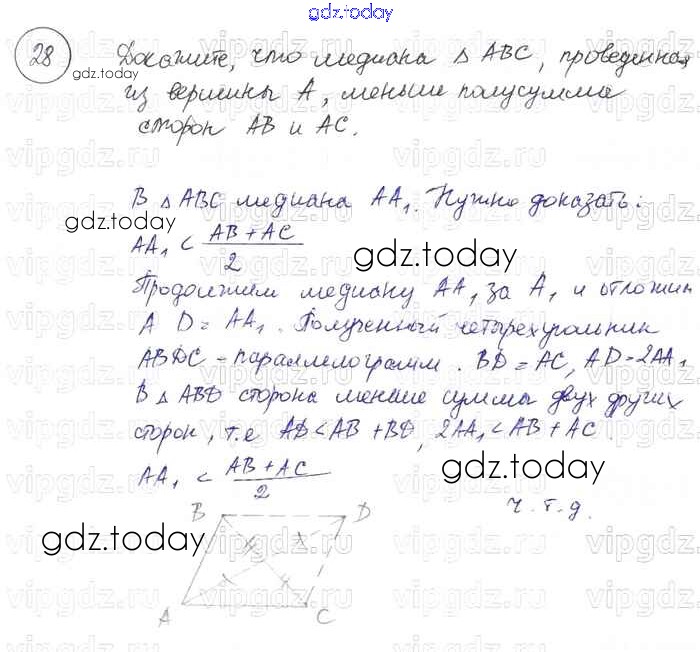 gdz.today
28 Докажите, что медиана △ ABC, проведенная
gdz.today
из вершины A, меньше полусуммы
сторон AB и AC.
В △ ABC медиана AA₁. Нужно доказать:
gdz.today
AA₁ < AB + AC / 2
gdz.today
Продолжим медиану AA₁ за A₁ и отложим
A₁D = AA₁. Полученный четырехугольник
ABDC - параллелограмм. BD = AC, AD = 2AA₁
В △ ABD сторона меньше суммы двух других
сторон, т.е AD < AB + BD, 2AA₁ < AB + AC.
AA₁ < AB + AC / 2
gdz.today
ч.т.д.
gdz.today
B D
A C
vipgdz.ru